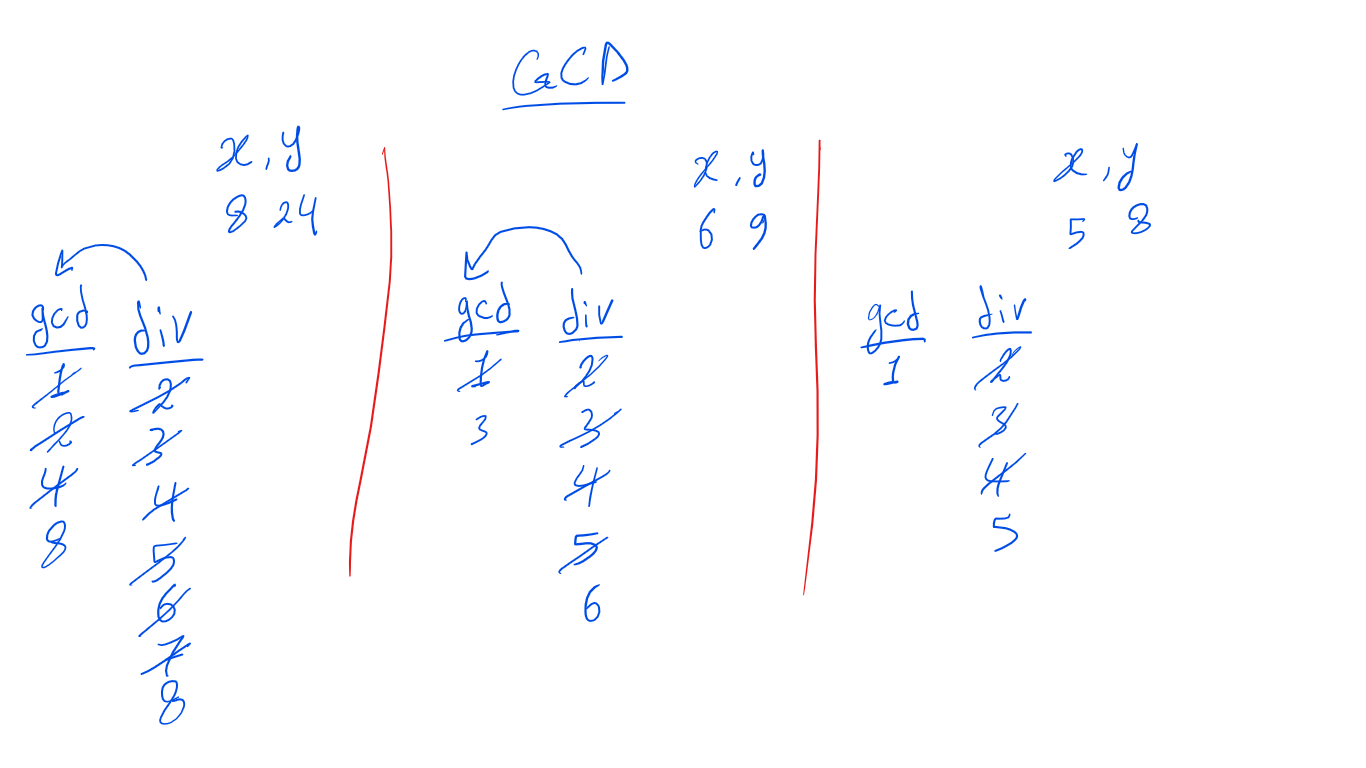 GCD
x, y
8 24
gcd div
1 2
2 3
4 4
8 5
6
7
8
x, y
6 9
gcd div
1 2
3 3
4
5
6
x, y
5 8
gcd div
1 2
3
4
5